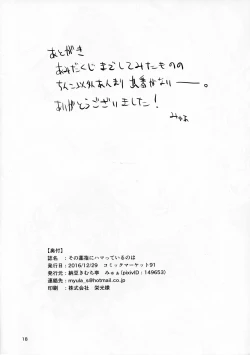 あとがき
あみだくじまでしてみたものの
ちんこ以外あんまり真書がない——。
ありがとうございました!
みゅぁ
【奥付】
誌名 : その薬指にハマっているのは
発行日 : 2016/12/29 コミックマーケット91
発行元 : 納豆きむち亭 みゅぁ(pixivID : 149653)
連絡先 : myula_s@hotmail.co.jp
印刷 : 株式会社 栄光様
18